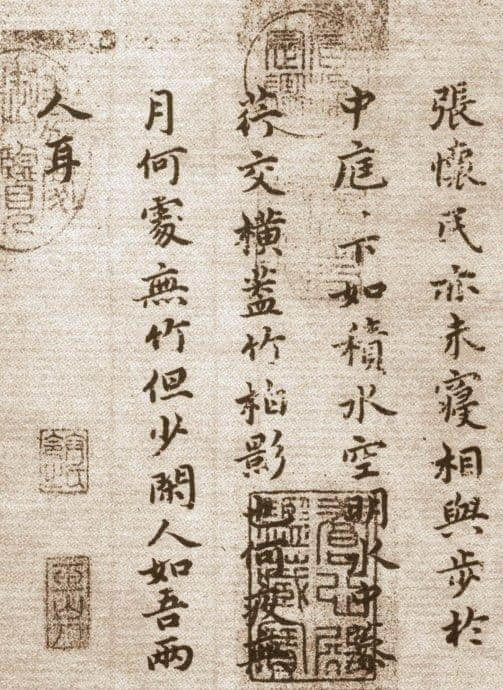 張懷民亦未寢相與步於
中庭、下如積水空明水中藻
荇交橫蓋竹柏影也何夜無
月何處無竹但少閑人如吾兩
人耳